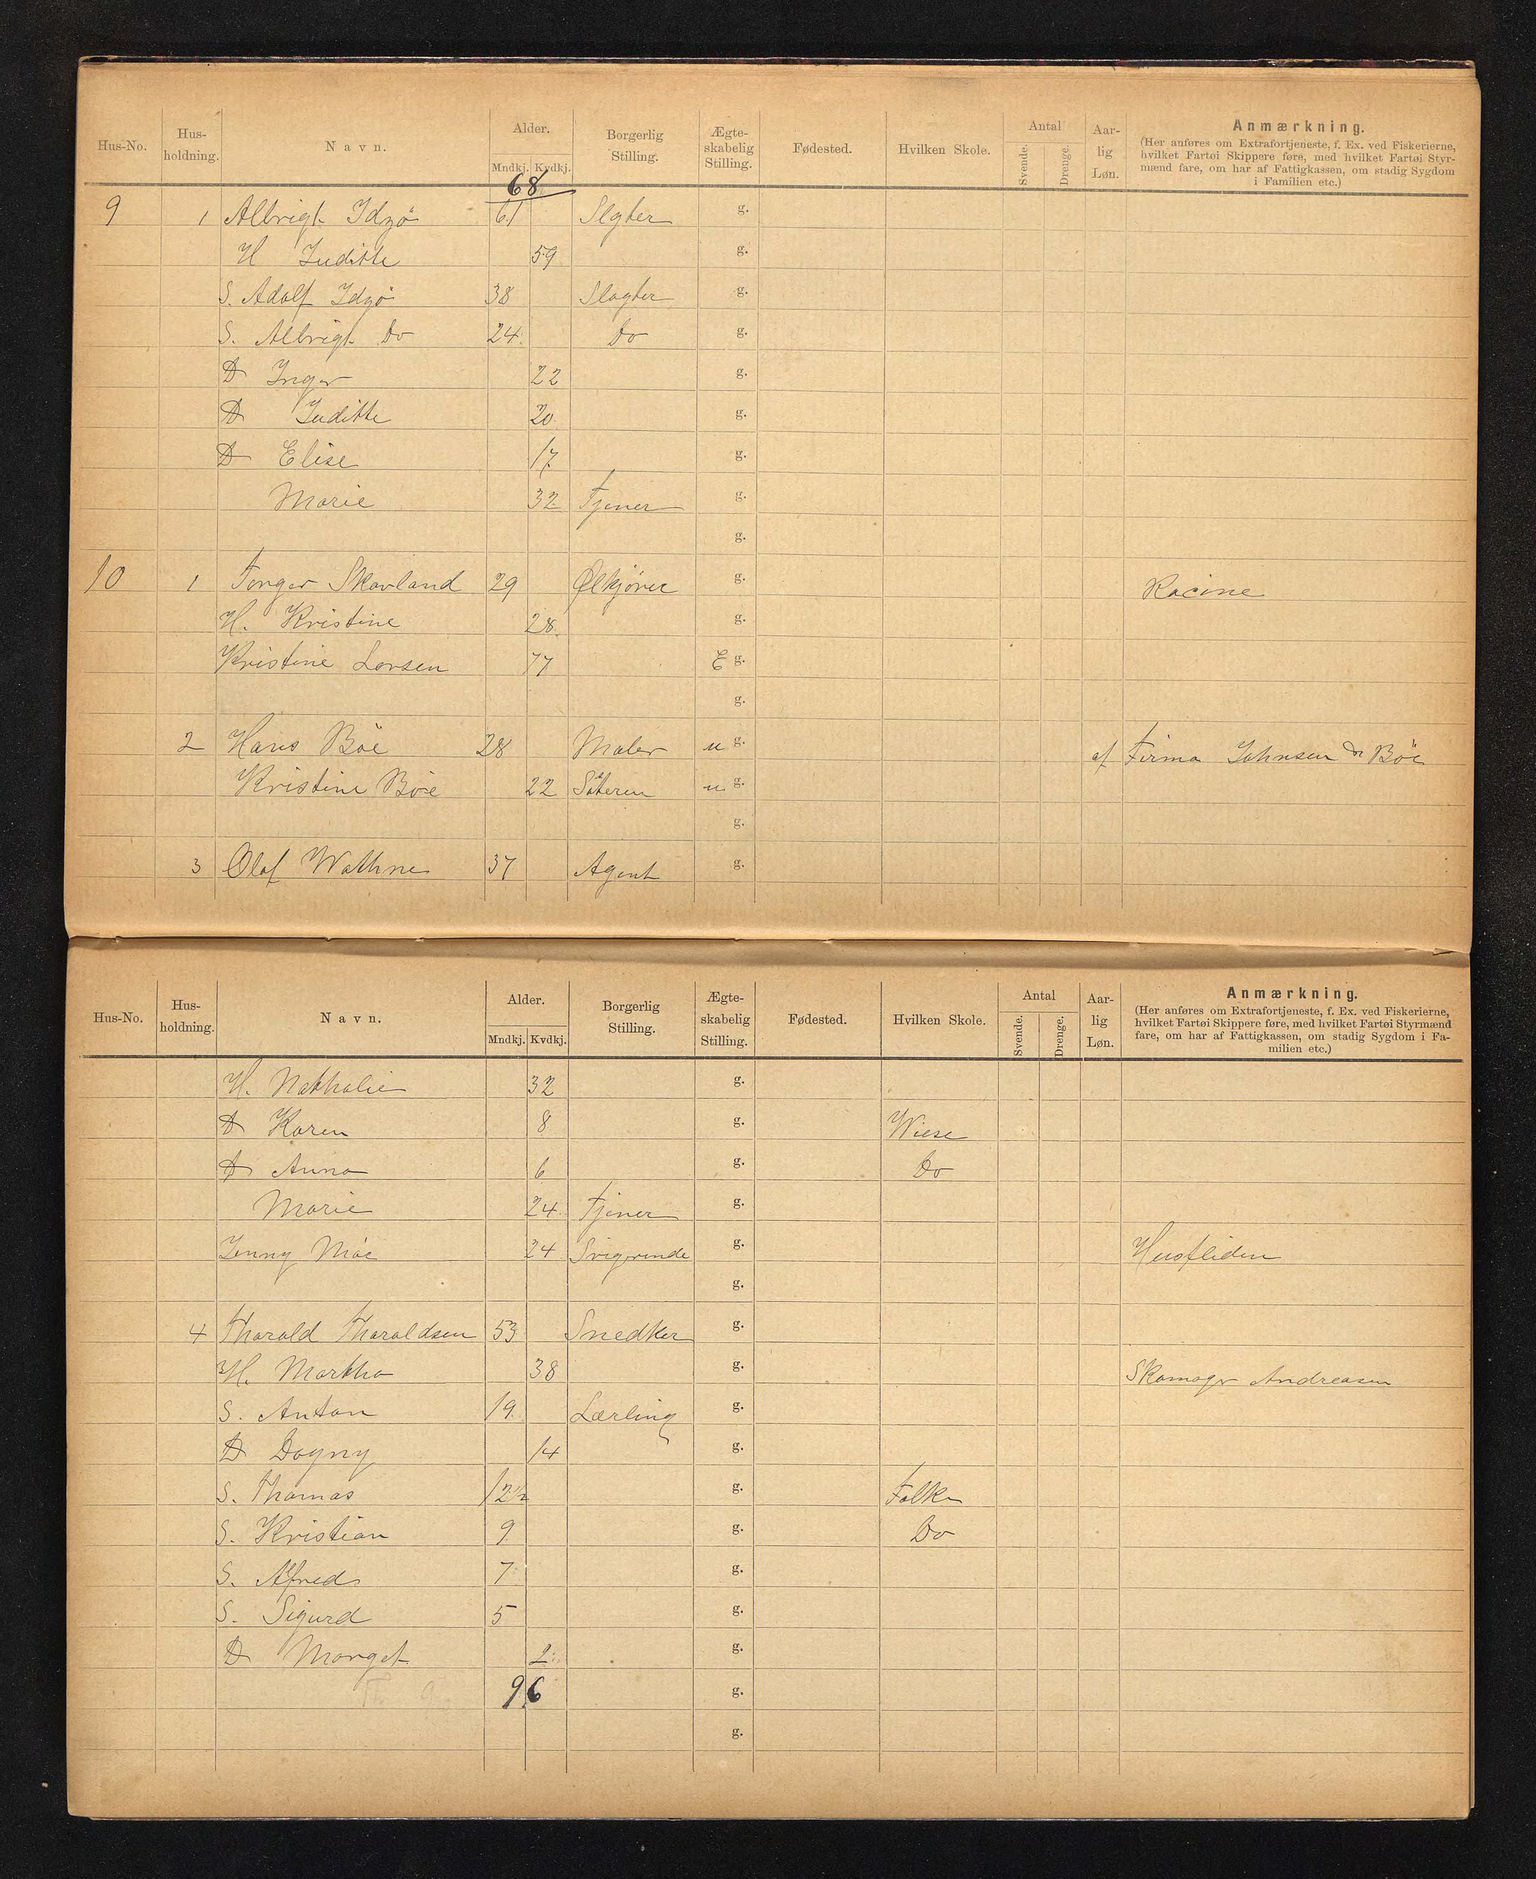 Hus-No. Hus-holdning. Navn. Alder. Mndkj. Kvdkj. Borgerlig Stilling. Ægte-skabelig Stilling. Fødested. Hvilken Skole. Antal Svende. Drenge. Aar-lig Løn. Anmærkning.
(Her anføres om Extrafortjeneste, f. Ex. ved Fiskerierne, hvilket Fartøi Skippere føre, med hvilket Fartøi Styr-mænd fare, om har af Fattigkassen, om stadig Sygdom i Familien etc.)
68
9 1 Albrigt Idzø 61 Slgter g.
H Juditte 59 g.
S. Adolf Idzø 38 Slagter g.
S. Albrigt Do 24 Do g.
D Inger 22 g.
D Juditte 20 g.
D Elise 17 g.
Marie 32 Tjener g.
g.
10 1 Torger Skavland 29 Ølkjører g. Racine
H. Kristine 28 g.
Kristine Larsen 77 E g.
g.
2 Hans Bøe 28 Maler u g. af Firma Johnsen & Bøe
Kristine Bøe 22 Søsteren u g.
g.
3 Olaf Wathne 37 Agent g.
Hus-No. Hus-holdning. Navn. Alder. Mndkj. Kvdkj. Borgerlig Stilling. Ægte-skabelig Stilling. Fødested. Hvilken Skole. Antal Svende. Drenge. Aar-lig Løn. Anmærkning.
(Her anføres om Extrafortjeneste, f. Ex. ved Fiskerierne, hvilket Fartøi Skippere føre, med hvilket Fartøi Styrmænd fare, om har af Fattigkassen, om stadig Sygdom i Fa-milien etc.)
H. Nathalie 32 g.
D Karen 8 g. Wiese
D Anna 6 g. Do
Marie 24 Tjener g.
Jenny Møe 24 Svigerinde g. Husfliden
g.
4 Tharald Tharaldsen 53 Snedker g.
H. Martha 38 g. Skomager Andreasen
S. Anton 19 Lærling g.
D Dagny 14 g.
S. Thomas 12½ g. Folke
S. Kristian 9 g. Do
S. Alfred 7 g.
S. Sigurd 5 g.
D Marget 2 g.
96 g.
g.